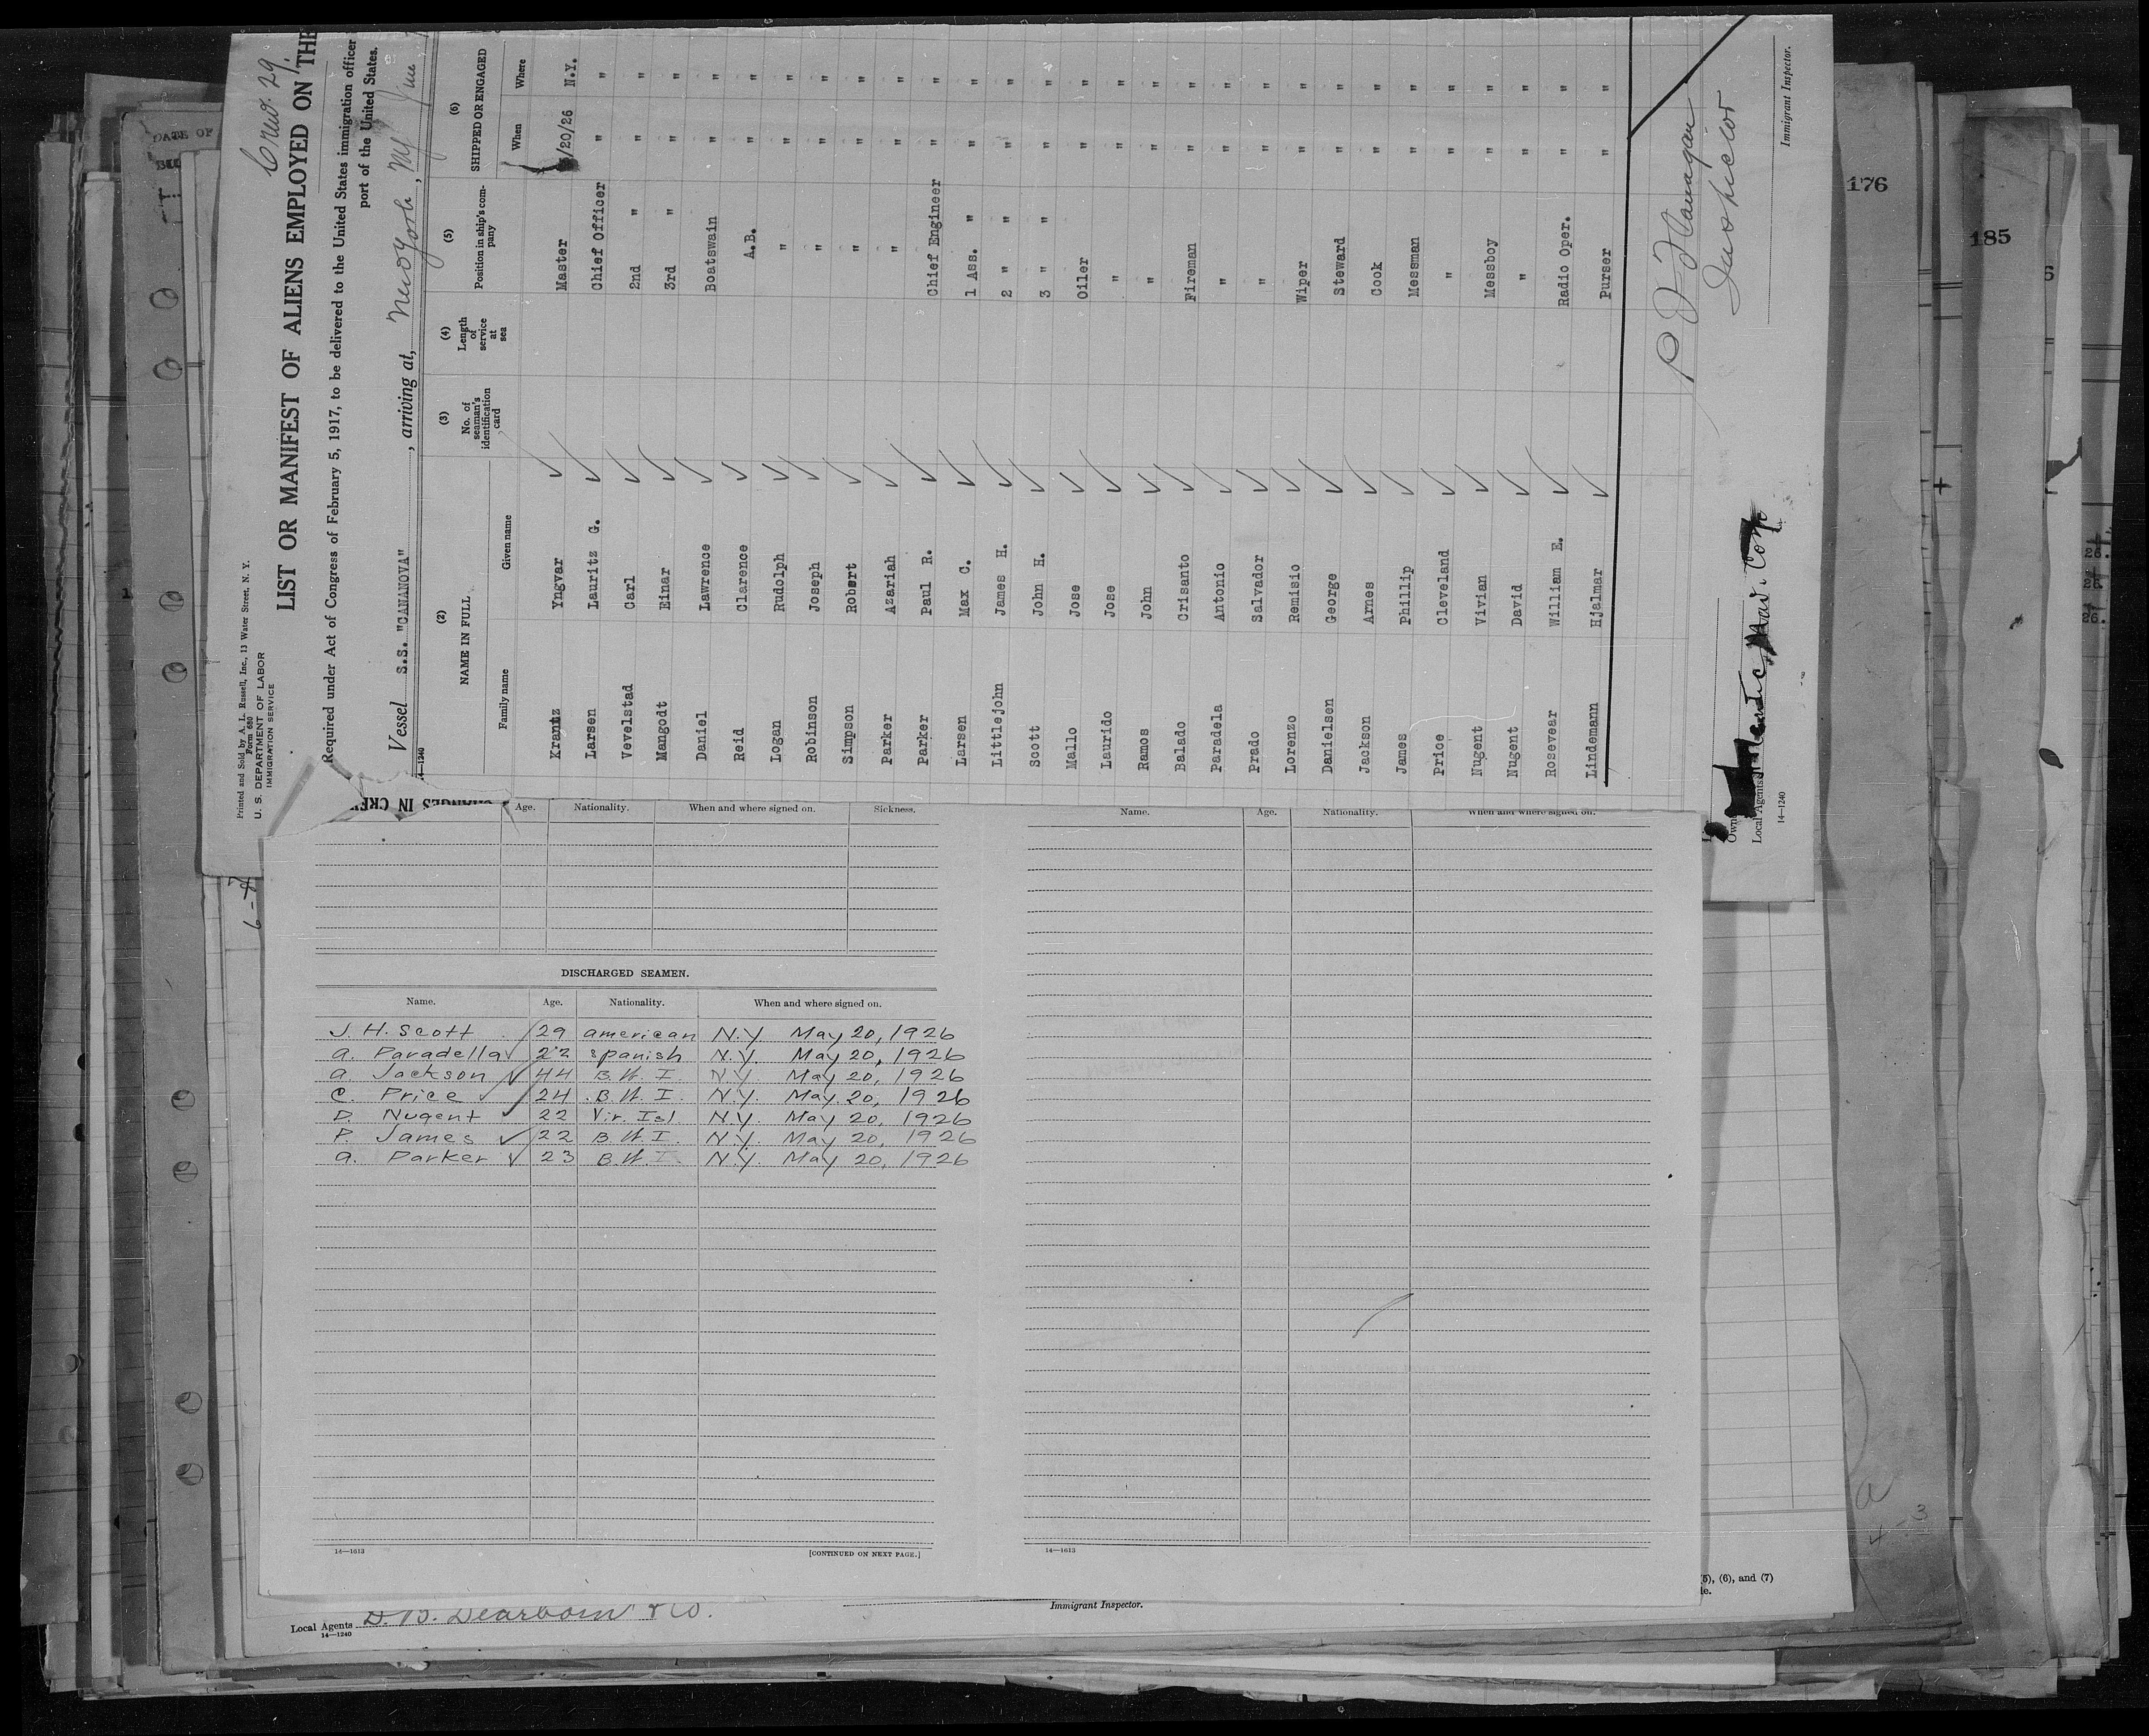 Crew. 29.
Printed and Sold by A. L. Russell, Inc., 13 Water Street, N. Y.
Form 680
U. S. DEPARTMENT OF LABOR
IMMIGRATION SERVICE
LIST OR MANIFEST OF ALIENS EMPLOYED ON THE
Required under Act of Congress of February 5, 1917, to be delivered to the United States immigration officer
port of the United States.
Vessel S.S. "CANANOVA", arriving at, New York, NY June
14—1240
(2) (3) (4) (5) (6)
NAME IN FULL No. of seaman's identification card Length of service at sea Position in ship's company SHIPPED OR ENGAGED
Family name Given name When Where
Krantz Yngvar Master /20/26 N.Y.
Larsen Lauritz G. Chief Officer " "
Vevelstad Carl 2nd " " "
Mangodt Einar 3rd " " "
Daniel Lawrence Boatswain " "
Reid Clarence A.B. " "
Logan Rudolph " " "
Robinson Joseph " " "
Simpson Robert " " "
Parker Azariah " " "
Parker Paul R. Chief Engineer " "
Larsen Max C. 1 Ass. " " "
Littlejohn James H. 2 " " " "
Scott John H. 3 " " " "
Mallo Jose Oiler " "
Laurido Jose " " "
Ramos John " " "
Balado Crisanto Fireman " "
Paradela Antonio " " "
Prado Salvador " " "
Lorenzo Remisio Wiper " "
Danielsen George Steward " "
Jackson Arnes Cook " "
James Phillip Messman " "
Price Cleveland " " "
Nugent Vivian Messboy " "
Nugent David " " "
Rosevear William E. Radio Oper. " "
Lindemann Hjalmar Purser " "
P J Flanagan
Inspector
Immigrant Inspector.
Own
Local Agents
14—1240
CHANGES IN CRE
Age. Nationality. When and where signed on. Sickness.
DISCHARGED SEAMEN.
Name. Age. Nationality. When and where signed on.
J. H. Scott 29 american N.Y. May 20, 1926
a. Paradella 22 spanish N.Y. May 20, 1926
a. Jackson 44 B.W.I. N.Y. May 20, 1926
C. Price 24 B.W.I. N.Y. May 20, 1926
D. Nugent 22 Vir. Isl N.Y. May 20, 1926
P. James 22 B.W.I. N.Y. May 20, 1926
a. Parker 23 B.W.I. N.Y. May 20, 1926
14—1613
[CONTINUED ON NEXT PAGE.]
Name. Age. Nationality. When and where signed on.
14—1613
Local Agents D. B. Dearborn & Co.
14—1240
Immigrant Inspector.
(5), (6), and (7)
DATE OF
176
185
26.
26.
26.